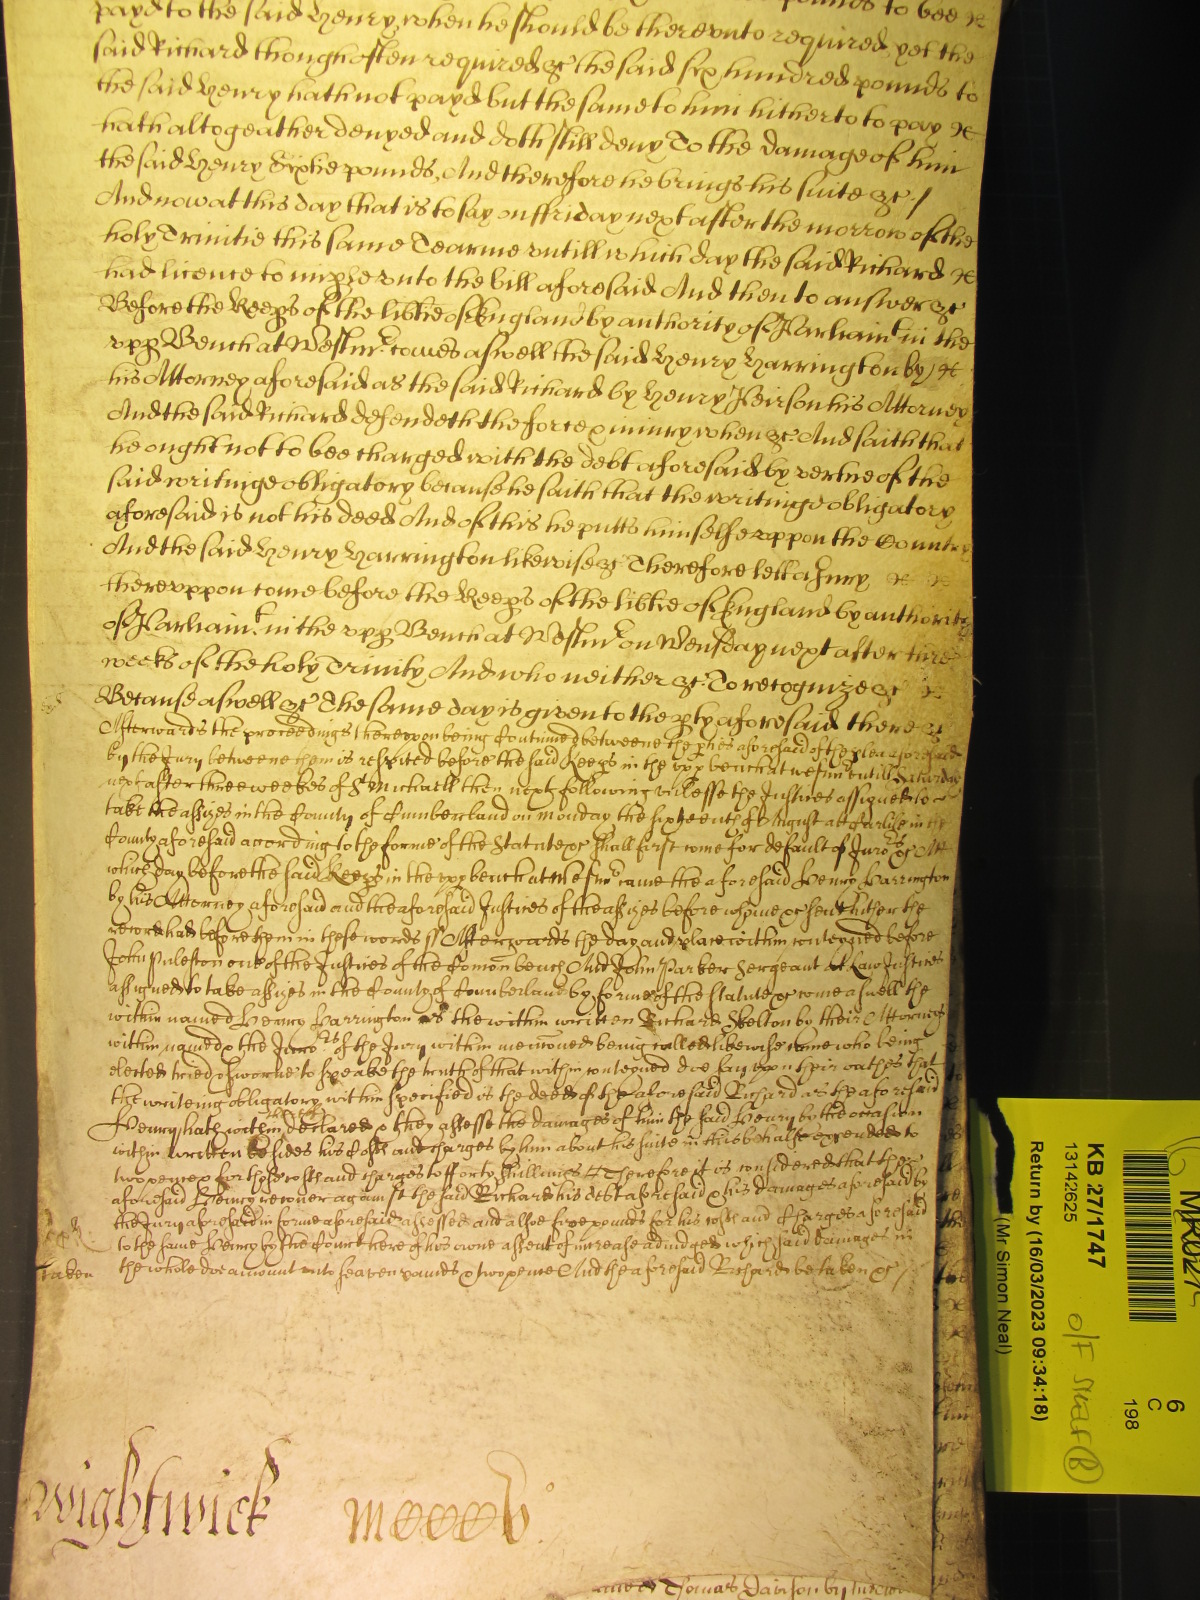 payd to the said Henry, when he should be therevnto required, yet the
said Richard though often required &c the said six hundred pounds to
the said Henry hath not payd but the same to him hitherto to pay
hath altogeather denyed and doth still deny To the damage of him
the said Henry Sixtie pounds, And therefore he brings his suite &c /
And now at this day that is to say on ffriday next after the morrow of the
holy Trinitie this same Tearme vntill which day the said Richard
had licence to imparle vnto the bill aforesaid And then to answer &c
Before the Keeps of the libtie of England by authority of Parliamt in the
vpp Bench at Westmr. comes aswell the said Henry Harrington by
his Attorney aforesaid as the said Richard by Henry Peirson his Attorney
And the said Richard defendeth the force & iniury when &c And saith that
he ought not to bee charged with the debt aforesaid by vertue of the
said writinge obligatory because he saith that the writinge obligatory
aforesaid is not his deed And of this he putts himselfe vppon the Country
And the said Henry Harrington likewise &c Therefore lett a Jury
therevppon come before the Keeps of the libtie of England by authority
of Parliamt. in the vpp Bench at Westmr on Wensday next after three
weeks of the holy Trinity And who neither &c To recognize &c
Because aswell &c The same day is given to the pties aforesaid there &c
Afterwards the proceedings therevpon being Continued betweene the pties aforesaid of the plea aforesaid
by the Jury betweene them is respited before the said Keeps in the vpp bench at westmr vntill Saturday
next after three weekes of St Michaell then next following vnlesse the Justices assigned to
take the assizes in the County of Cumberland on monday the sixteenth of August att Carlile in the
County aforesaid according to the forme of the Statute &c shall first come for default of Jurors &c Att
which day before the said Keeps in the vpp bench at westmr came the aforesaid Henry Harrington
by his Attorney aforesaid and the aforesaid Justices of the assizes before whome &c sent hither the
record had before them in these words ss Afterwards the day and place within conteyned before
John Puleston one of the Justices of the Comon bench And John Parker Sergeant at Law Justices
assigned to take assizes in the County of Cumberland by forme of the statute &c come aswell the
within named Henry Harrington as the within written Richard Skelton by their Attorneys
within named & the Jurors of the Jury within menconed being called likewise come who being
elected tried & sworne to speake the truth of that within conteyned doe say vpon their oathes that
the writeing obligatory within specified is the deed of the aforesaid Richard as the aforesaid
Henry hath within declared & they assesse the damages of him the said Henry by the occasion
within written besides his Costs and charges by him about his suite in this behalfe expended to
two pence & for those costs and charges to fforty shillings Therefore it is considered that the
aforesaid Henry recover against the said Richard his debt aforesaid & his damages aforesaid by
the Jury aforesaid in forme aforesaid assessed and alsoe five pounds for his costs and Charges aforesaid
to the same Henry by the Court here of his owne assent of increase adiudged which said damages in
taken
the whole doe amount vnto seaven pounds & two pence And the aforesaid Richard be taken &c /
Wightwick
Thomas Dawson by
KB 27/1747
13142625
Return by (16/03/2023 09:34:18)
(Mr Simon Neal)
6
C
198